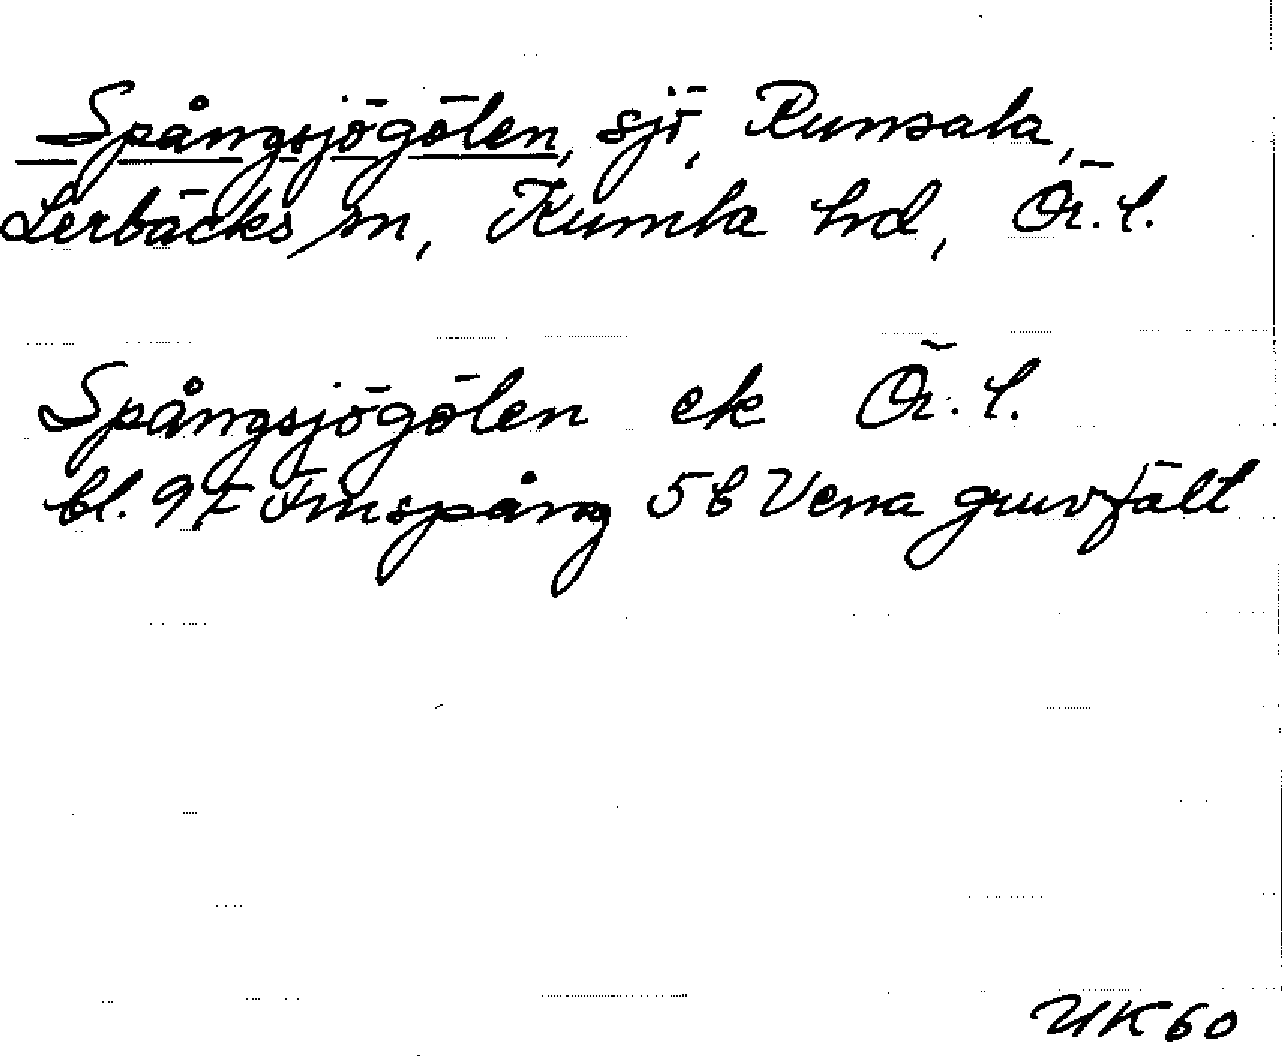 Spångsjögölen, sjö, Runsala,
Lerbäcks sn, Kumla hd, Ör. l.
Spångsjögölen ek Ör. l.
bl. 9F Finspång 5b Vena gruvfält
UK60